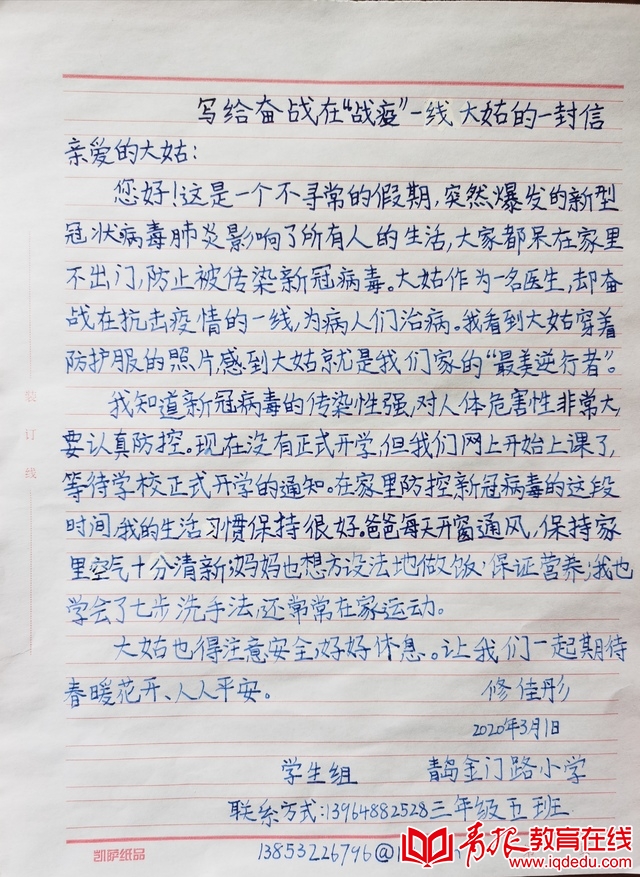 写给奋战在“战疫”一线大姑的一封信
亲爱的大姑：
您好！这是一个不寻常的假期，突然爆发的新型
冠状病毒肺炎影响了所有人的生活，大家都呆在家里
不出门，防止被传染新冠病毒。大姑作为一名医生，却奋
战在抗击疫情的一线，为病人们治病。我看到大姑穿着
防护服的照片，感到大姑就是我们家的“最美逆行者”。
我知道新冠病毒的传染性强，对人体危害性非常大，
要认真防控。现在没有正式开学，但我们网上开始上课了，
等待学校正式开学的通知。在家里防控新冠病毒的这段
时间，我的生活习惯保持很好。爸爸每天开窗通风，保持家
里空气十分清新；妈妈也想方设法地做饭，保证营养；我也
学会了七步洗手法，还常常在家运动。
大姑也得注意安全，好好休息。让我们一起期待
春暖花开、人人平安。
修佳彤
2020年3月1日
学生组 青岛金门路小学
联系方式：13964882528 三年级五班
13853226796@1
装订线
凯萨纸品
青报教育在线
www.iqdedu.com